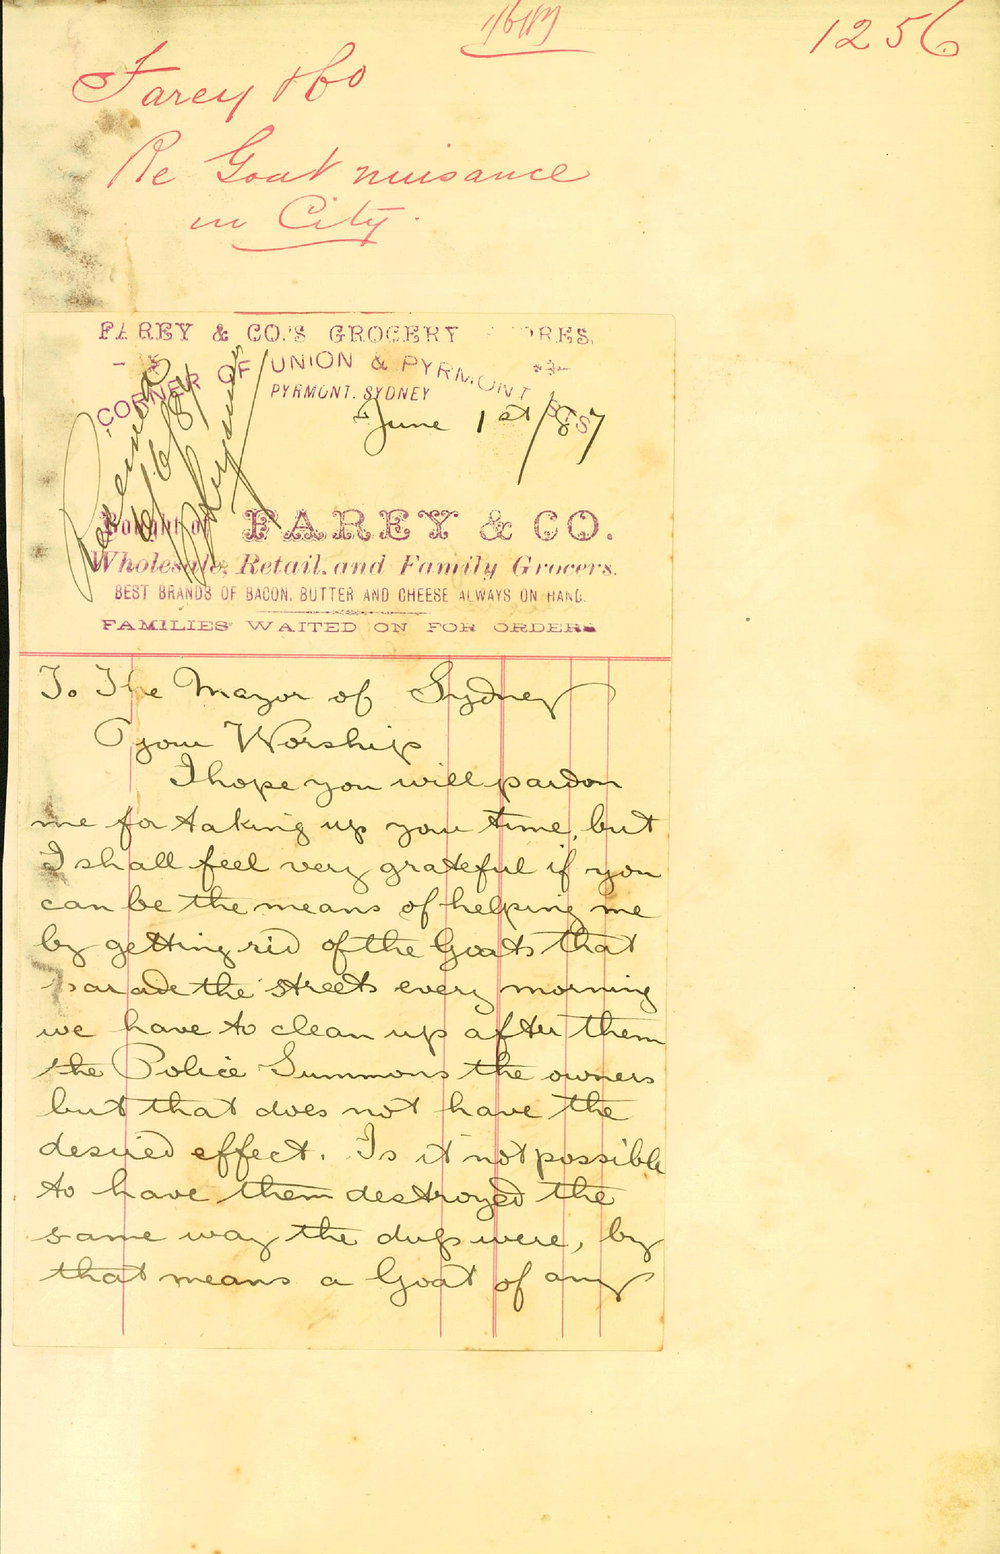 1256
Farey & Co
Re Goat nuisance
in City.
FAREY & CO.'S GROCERY STORES,
CORNER OF UNION & PYRMONT STS
PYRMONT. SYDNEY
June 1st/87
Received
6/6/87
Bought of FAREY & CO.
Wholesale, Retail, and Family Grocers.
BEST BRANDS OF BACON, BUTTER AND CHEESE ALWAYS ON HAND.
FAMILIES WAITED ON FOR ORDERS
To The Mayor of Sydney
your Worship
I hope you will pardon
me for taking up your time, but
I shall feel very grateful if you
can be the means of helping me
by getting rid of the Goats that
parade the streets every morning
we have to clean up after them
the Police Summons the owners
but that does not have the
desired effect. Is it not possible
to have them destroyed the
same way the dogs were, by
that means a Goat of any